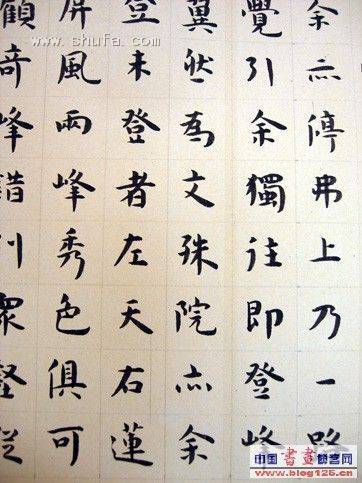 余亦停弗上乃一路
覺引余獨往即登峰
翼然為文殊院亦余
登未登者左天右蓮
屏風兩峰秀色俱可
顧奇峰錯列眾壑從
www.shufa.com
中国書畫
www.blog125.cn